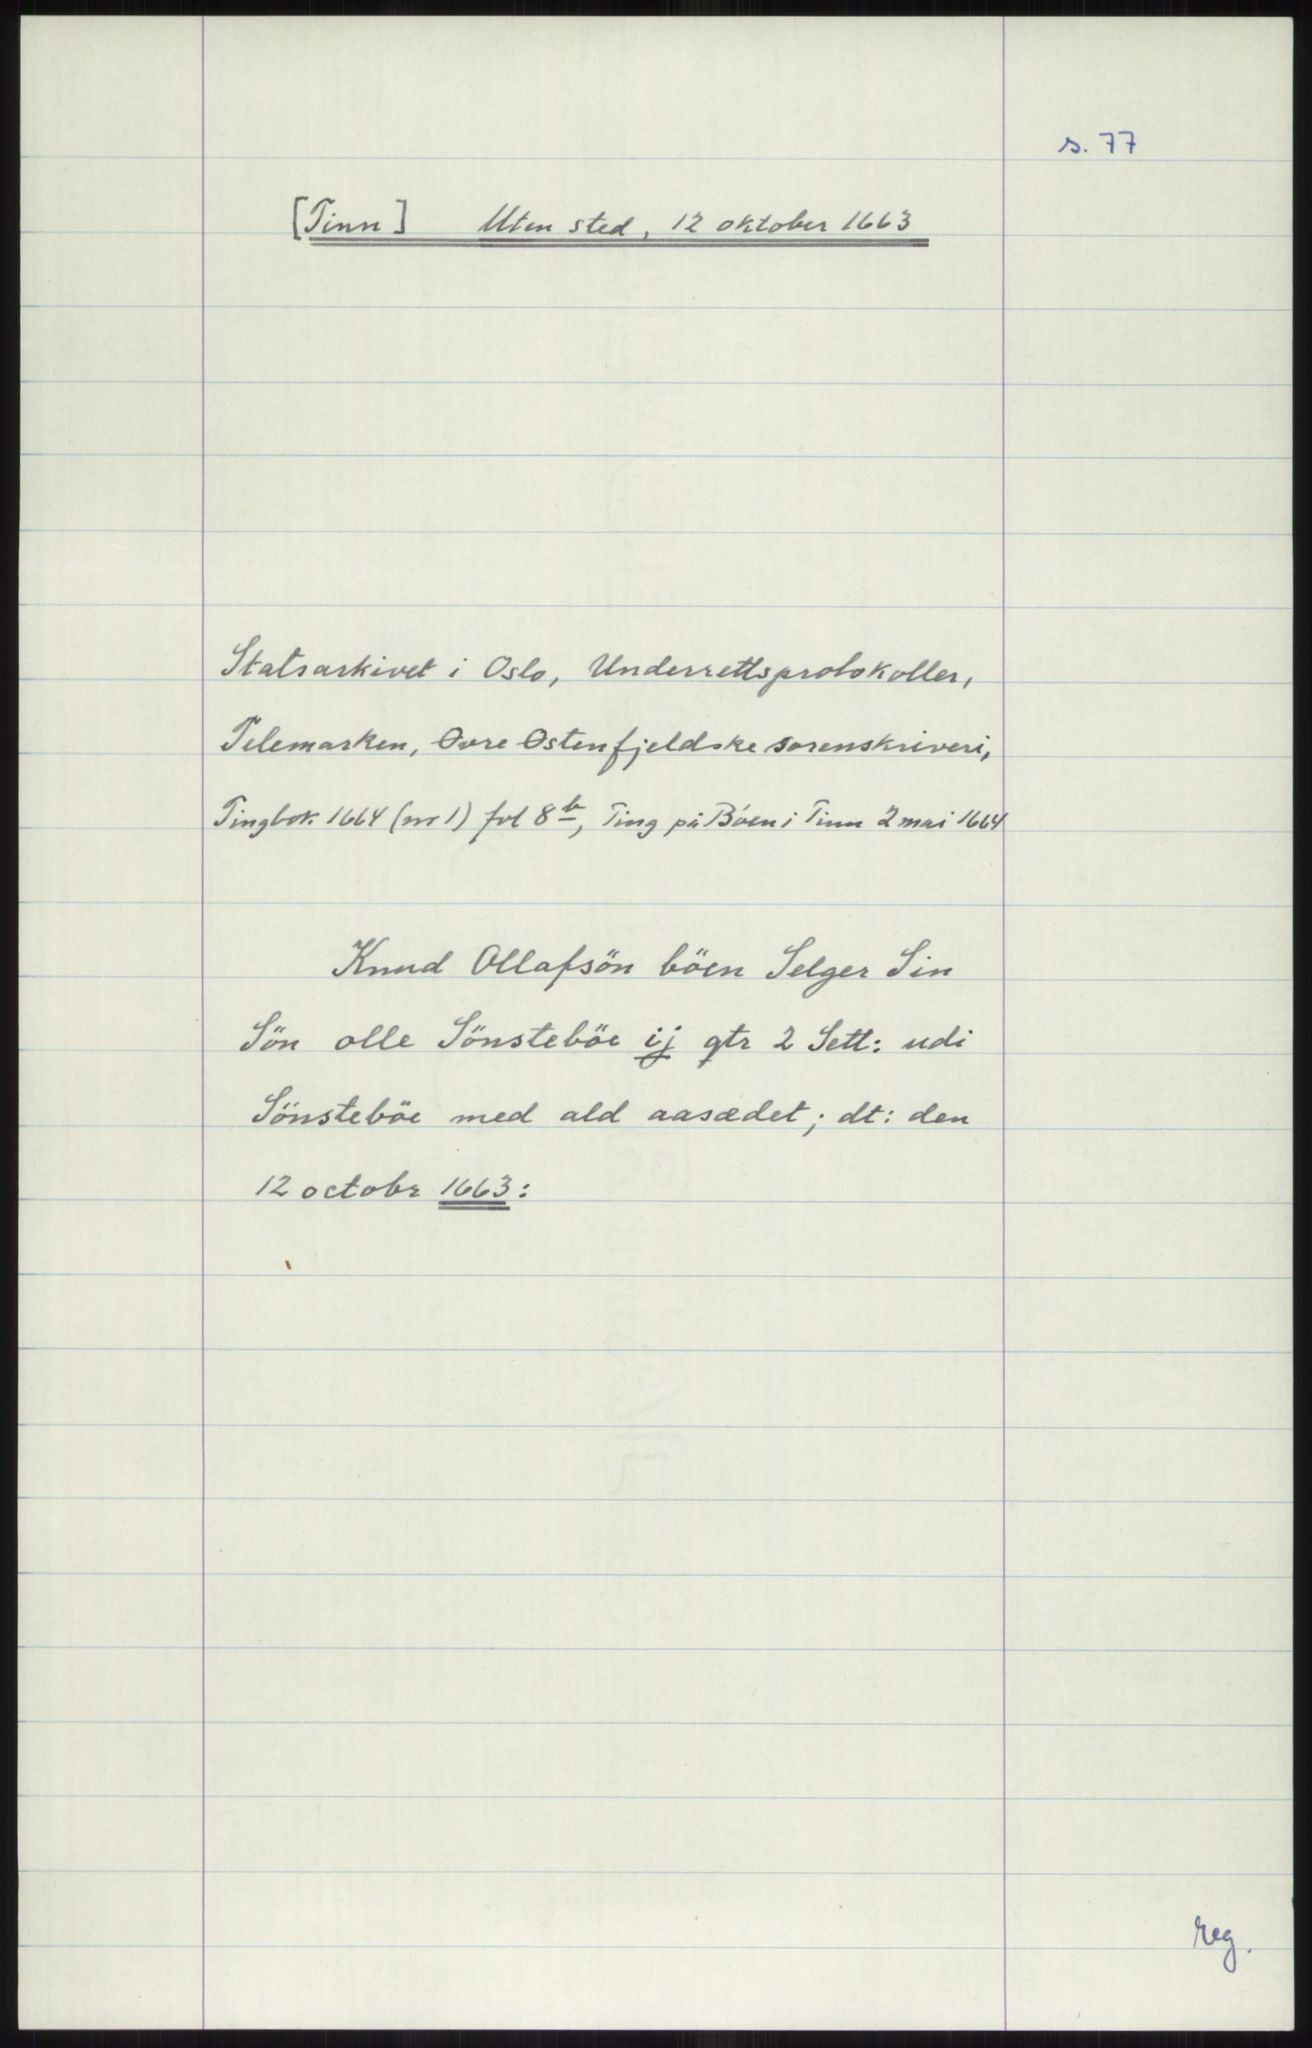 s. 77
[Tinn] Uten sted, 12 oktober 1663
Statsarkivet i Oslo, Underrettsprotokoller,
Telemarken, Øvre Østenfjeldske sorenskriveri,
Tingbok 1664 (nr 1) fol 8b, Ting på Bøen i Tinn 2 mai 1664
Knud Ollafsön böen Selger Sin
Sön olle Sönsteböe ij qtr 2 Sett: udi
Sönsteböe med ald aasædet; dt: den
12 octobr 1663:
reg.